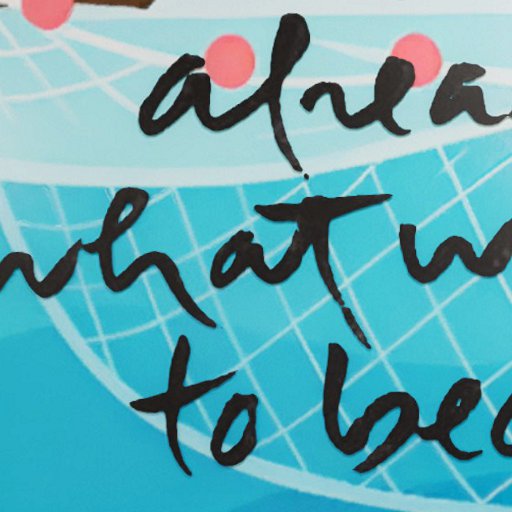 alrea
what w
to bec